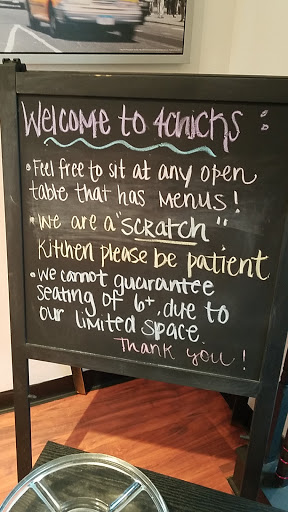 Welcome to 4chicks
• Feel free to sit at any open
table that has menus!
• We are a "scratch"
Kitchen please be patient
• We cannot guarantee
seating of 6+, due to
our limited space.
Thank you!